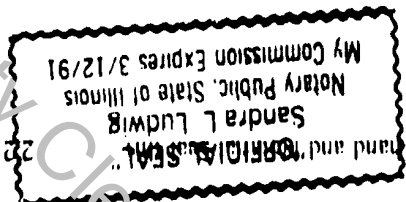 "OFFICIAL SEAL"
Sandra L Ludwig
Notary Public, State of Illinois
My Commission Expires 3/12/91
hand and
22